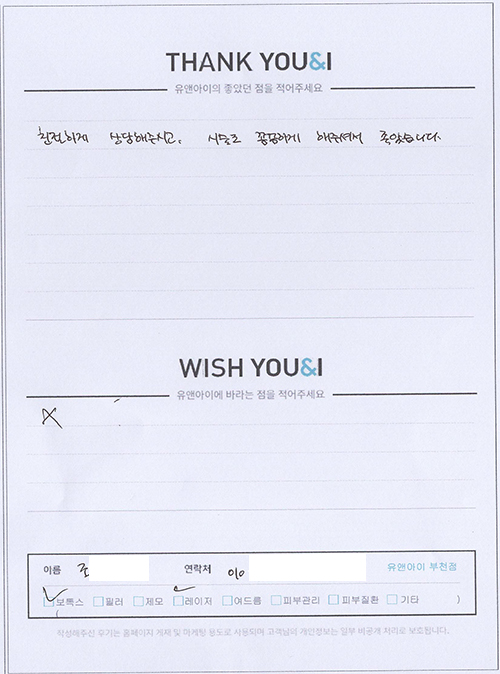 THANK YOU&I
유앤아이의 좋았던 점을 적어주세요
친절하게 상담해주시고, 시술도 꼼꼼하게 해주셔서 좋았습니다.
WISH YOU&I
유앤아이에 바라는 점을 적어주세요
X
이름 조 연락처 010 유앤아이 부천점
보톡스 필러 제모 레이저 여드름 피부관리 피부질환 기타 )
(
작성해주신 후기는 홈페이지 게재 및 마케팅 용도로 사용되며 고객님의 개인정보는 일부 비공개 처리로 보호됩니다.